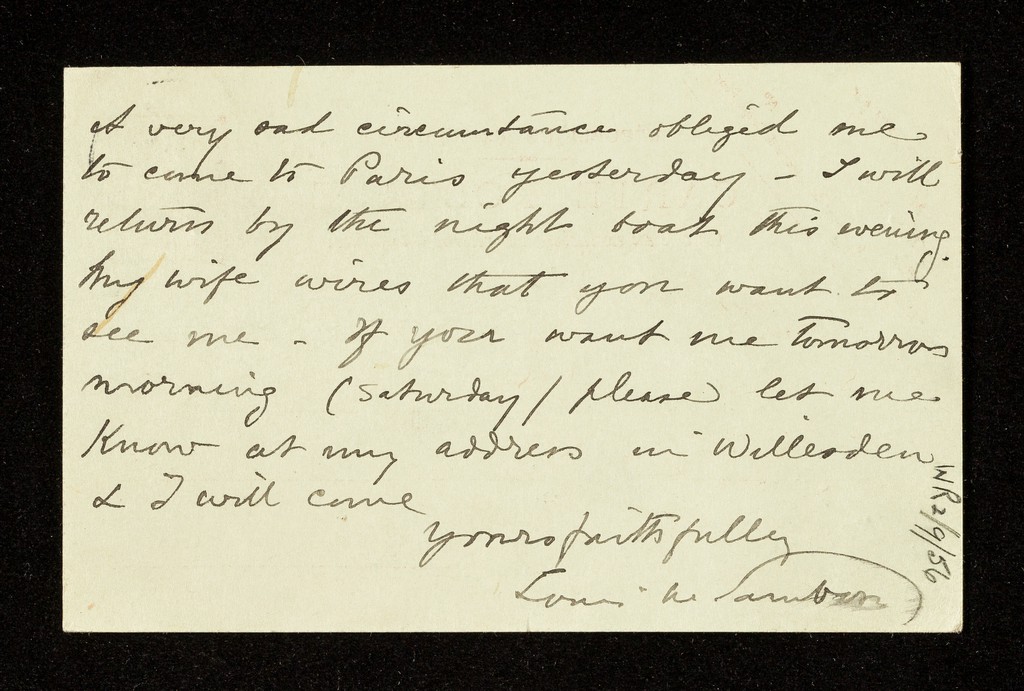 A very sad circumstance obliged me
to come to Paris yesterday - I will
return by the night boat this evening.
My wife wires that you want to
see me - If you want me tomorrow
morning (Saturday) please let me
Know at my address in Willesden
& I will come
yours faithfully
Louis W Sambon
WR2/9/56